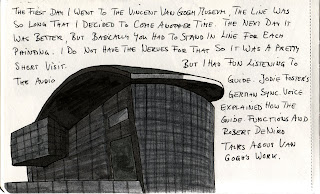 The First Day I Went to the Vincent Van Gogh Museum, the Line was
So Long That I Decided to Come Another Time. The Next Day it
Was Better, But Basically You Had to Stand in Line For Each
Painting. I Do Not Have the Nerves For That So It Was A Pretty
Short Visit. But I Had Fun Listening To
The Audio Guide. Jodie Foster's
German Sync Voice
Explained How The
Guide Functions And
Robert DeNiro
Talks About Van
Gogh's Work.